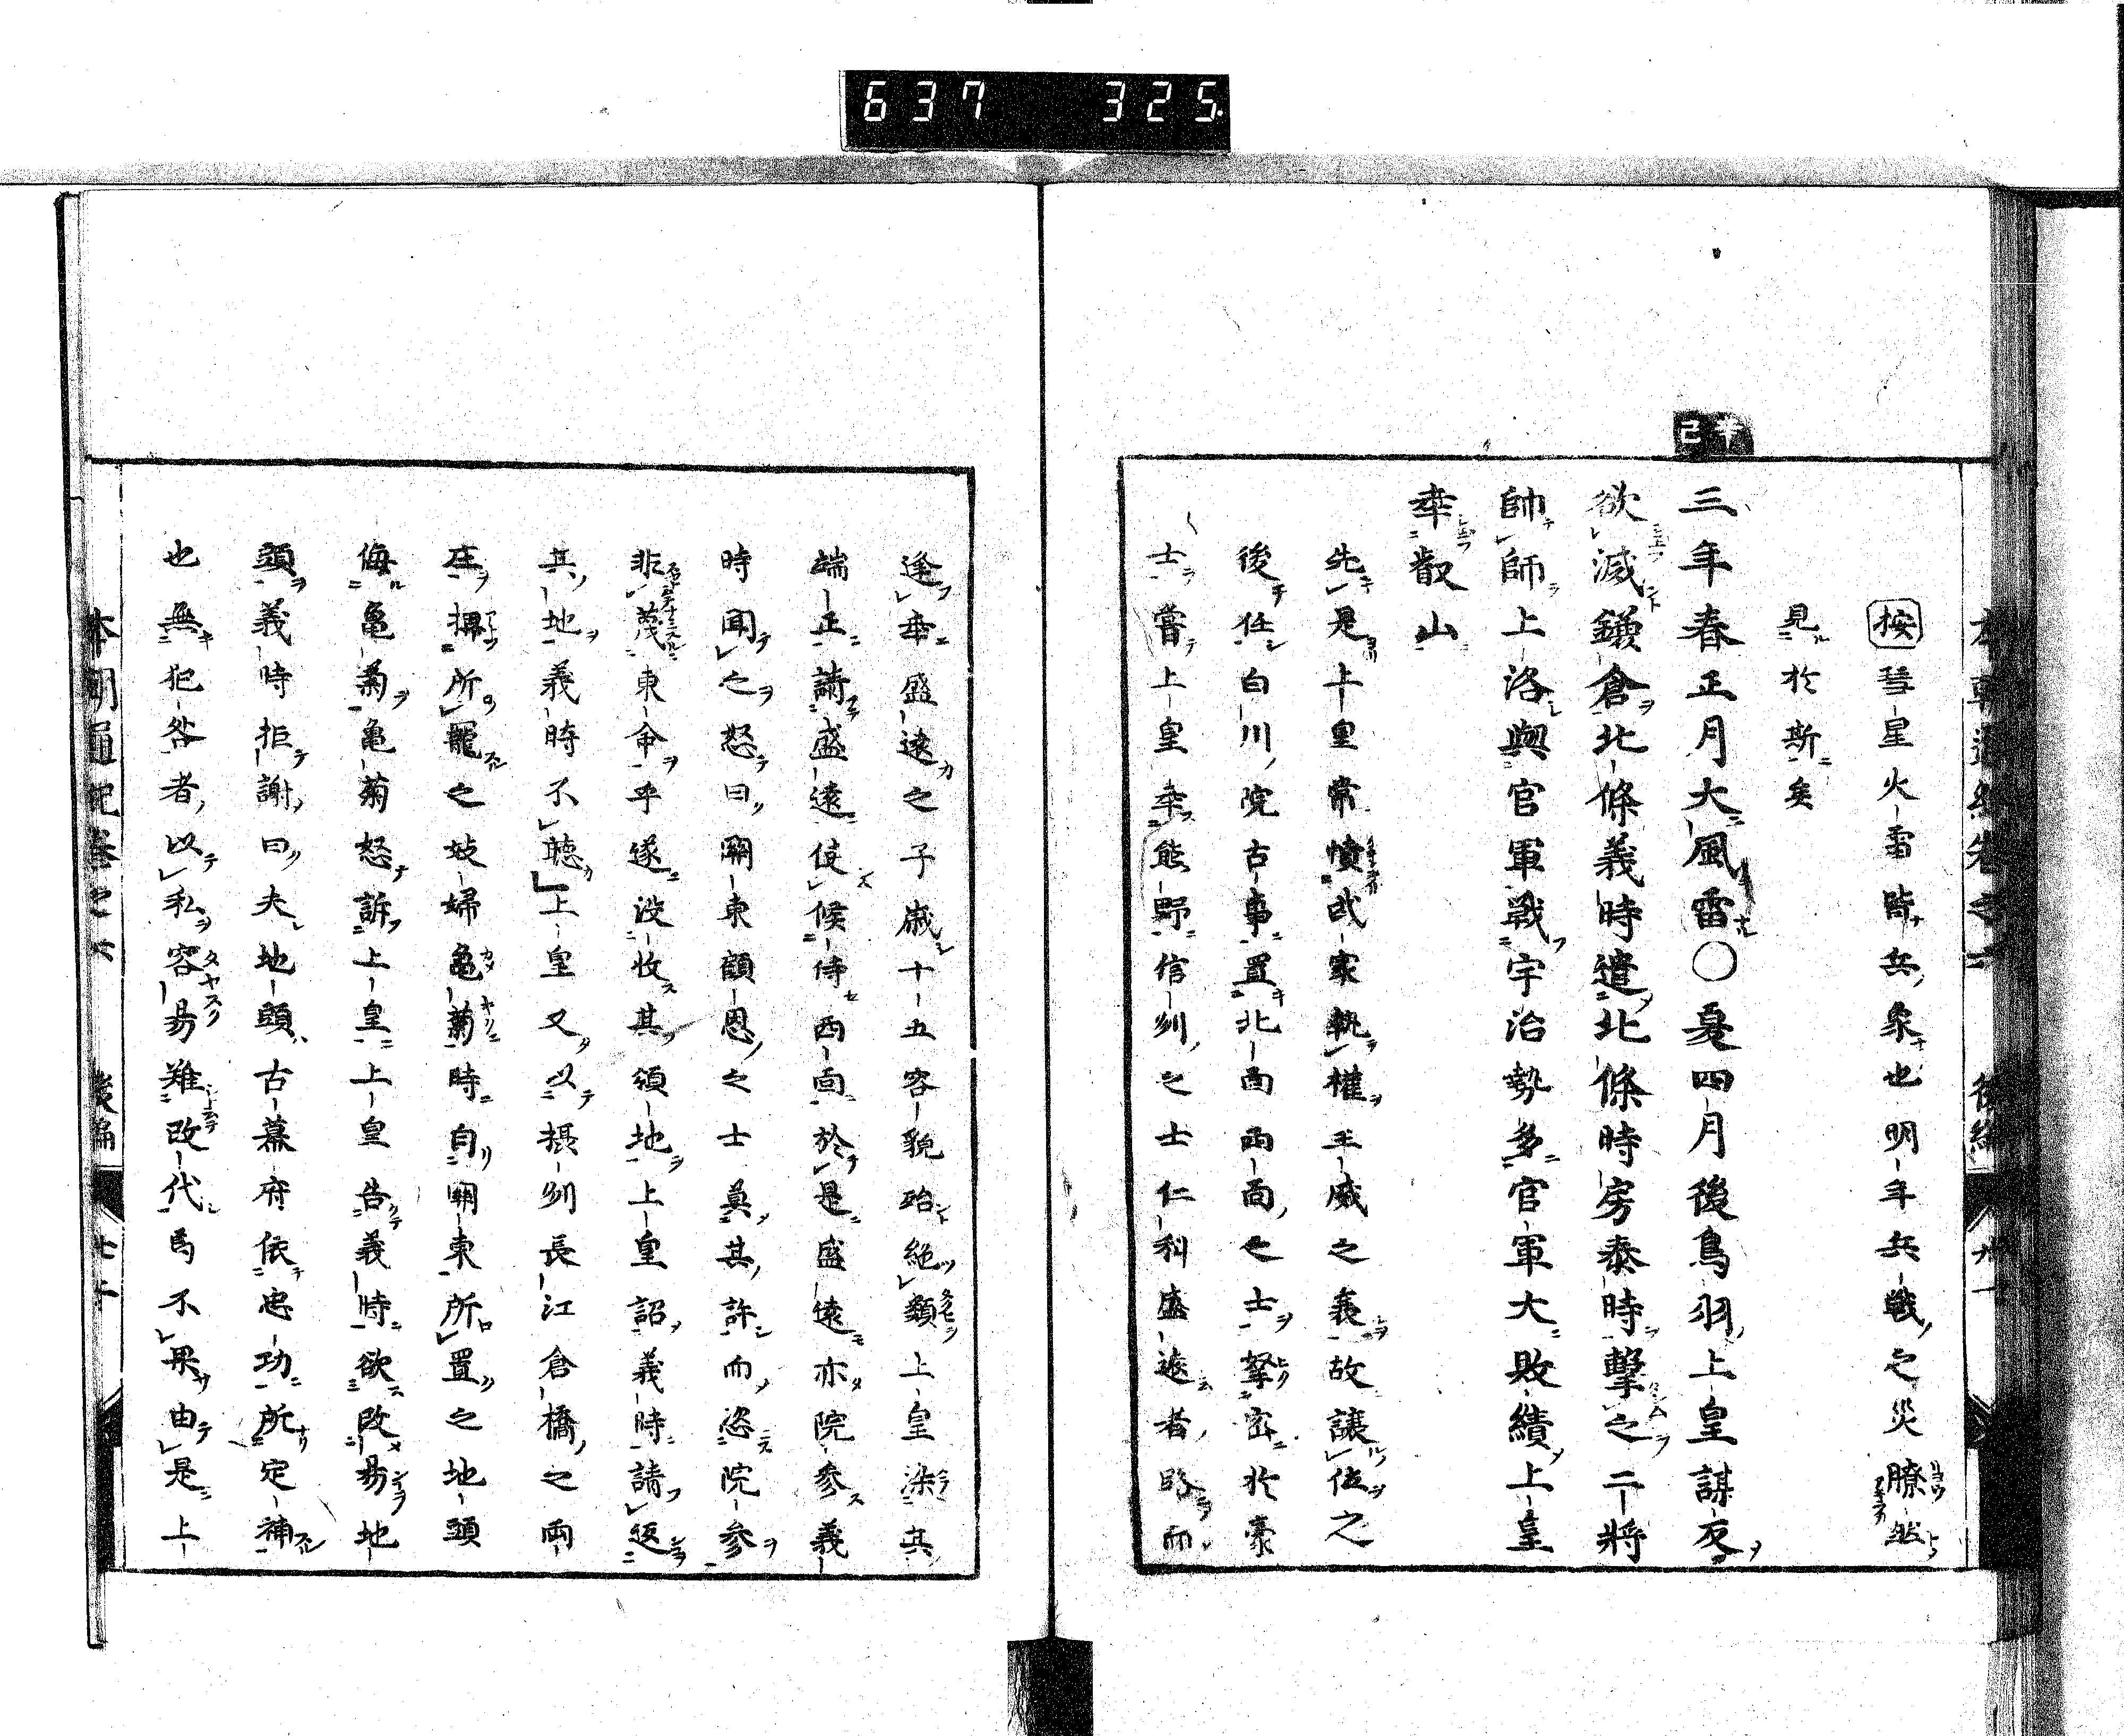 637 325
按彗星火雷時兵象也明年兵戰之災瞭然
見於斯矣
辛巳
三年春正月大風雷○夏四月後鳥羽上皇謀反
欲滅鎌倉北條義時遣北條時房泰時擊之二將
帥師上洛與官軍戰宇治勢多官軍大敗績上皇
幸叡山
先是上皇常憤武家執權王威之衰故讓位之
後任白川院古事置北面西面之士拏密於豪
士嘗上皇幸熊野信州之士仁科盛遠者路而
逢幸盛遠之子歳十五容貌殆絶類上皇染其
端正請盛遠使候侍西面於是盛遠亦院參義
時聞之怒曰關東顧恩之士莫其許而恣院參
非蔑東命乎遂没收其領地上皇詔義時請返
其地義時不聽上皇又以摂州長江倉橋之兩
庄擢所寵之妓婦亀菊時自關東所置之地頭
侮亀菊亀菊怒訴上皇上皇告義時欲改易地
頭義時拒謝曰夫地頭古幕府依忠功所定補
也無犯咎者以私容易難改代焉不果由是上
本朝通紀巻之六 後編